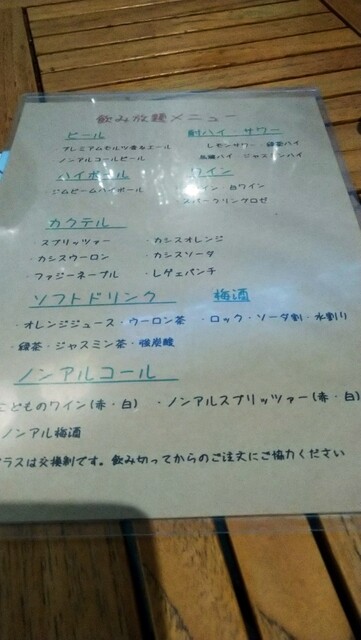 飲み放題メニュー
ビール
・プレミアムモルツ香るエール
ノンアルコールビール
酎ハイ・サワー
レモンサワー・緑茶ハイ
烏龍ハイ ジャスミンハイ
ハイボール
・ジムビームハイボール
ワイン
イン・白ワイン
スパークリングロゼ
カクテル
・スプリッツァー ・カシスオレンジ
・カシスウーロン ・カシスソーダ
・ファジーネーブル ・レゲエパンチ
ソフトドリンク
・オレンジジュース・ウーロン茶
・緑茶・ジャスミン茶・強炭酸
梅酒
・ロック・ソーダ割・水割り
ノンアルコール
こどものワイン(赤・白) ・ノンアルスプリッツァー(赤・白)
ノンアル梅酒
グラスは交換制です。飲み切ってからのご注文にご協力ください